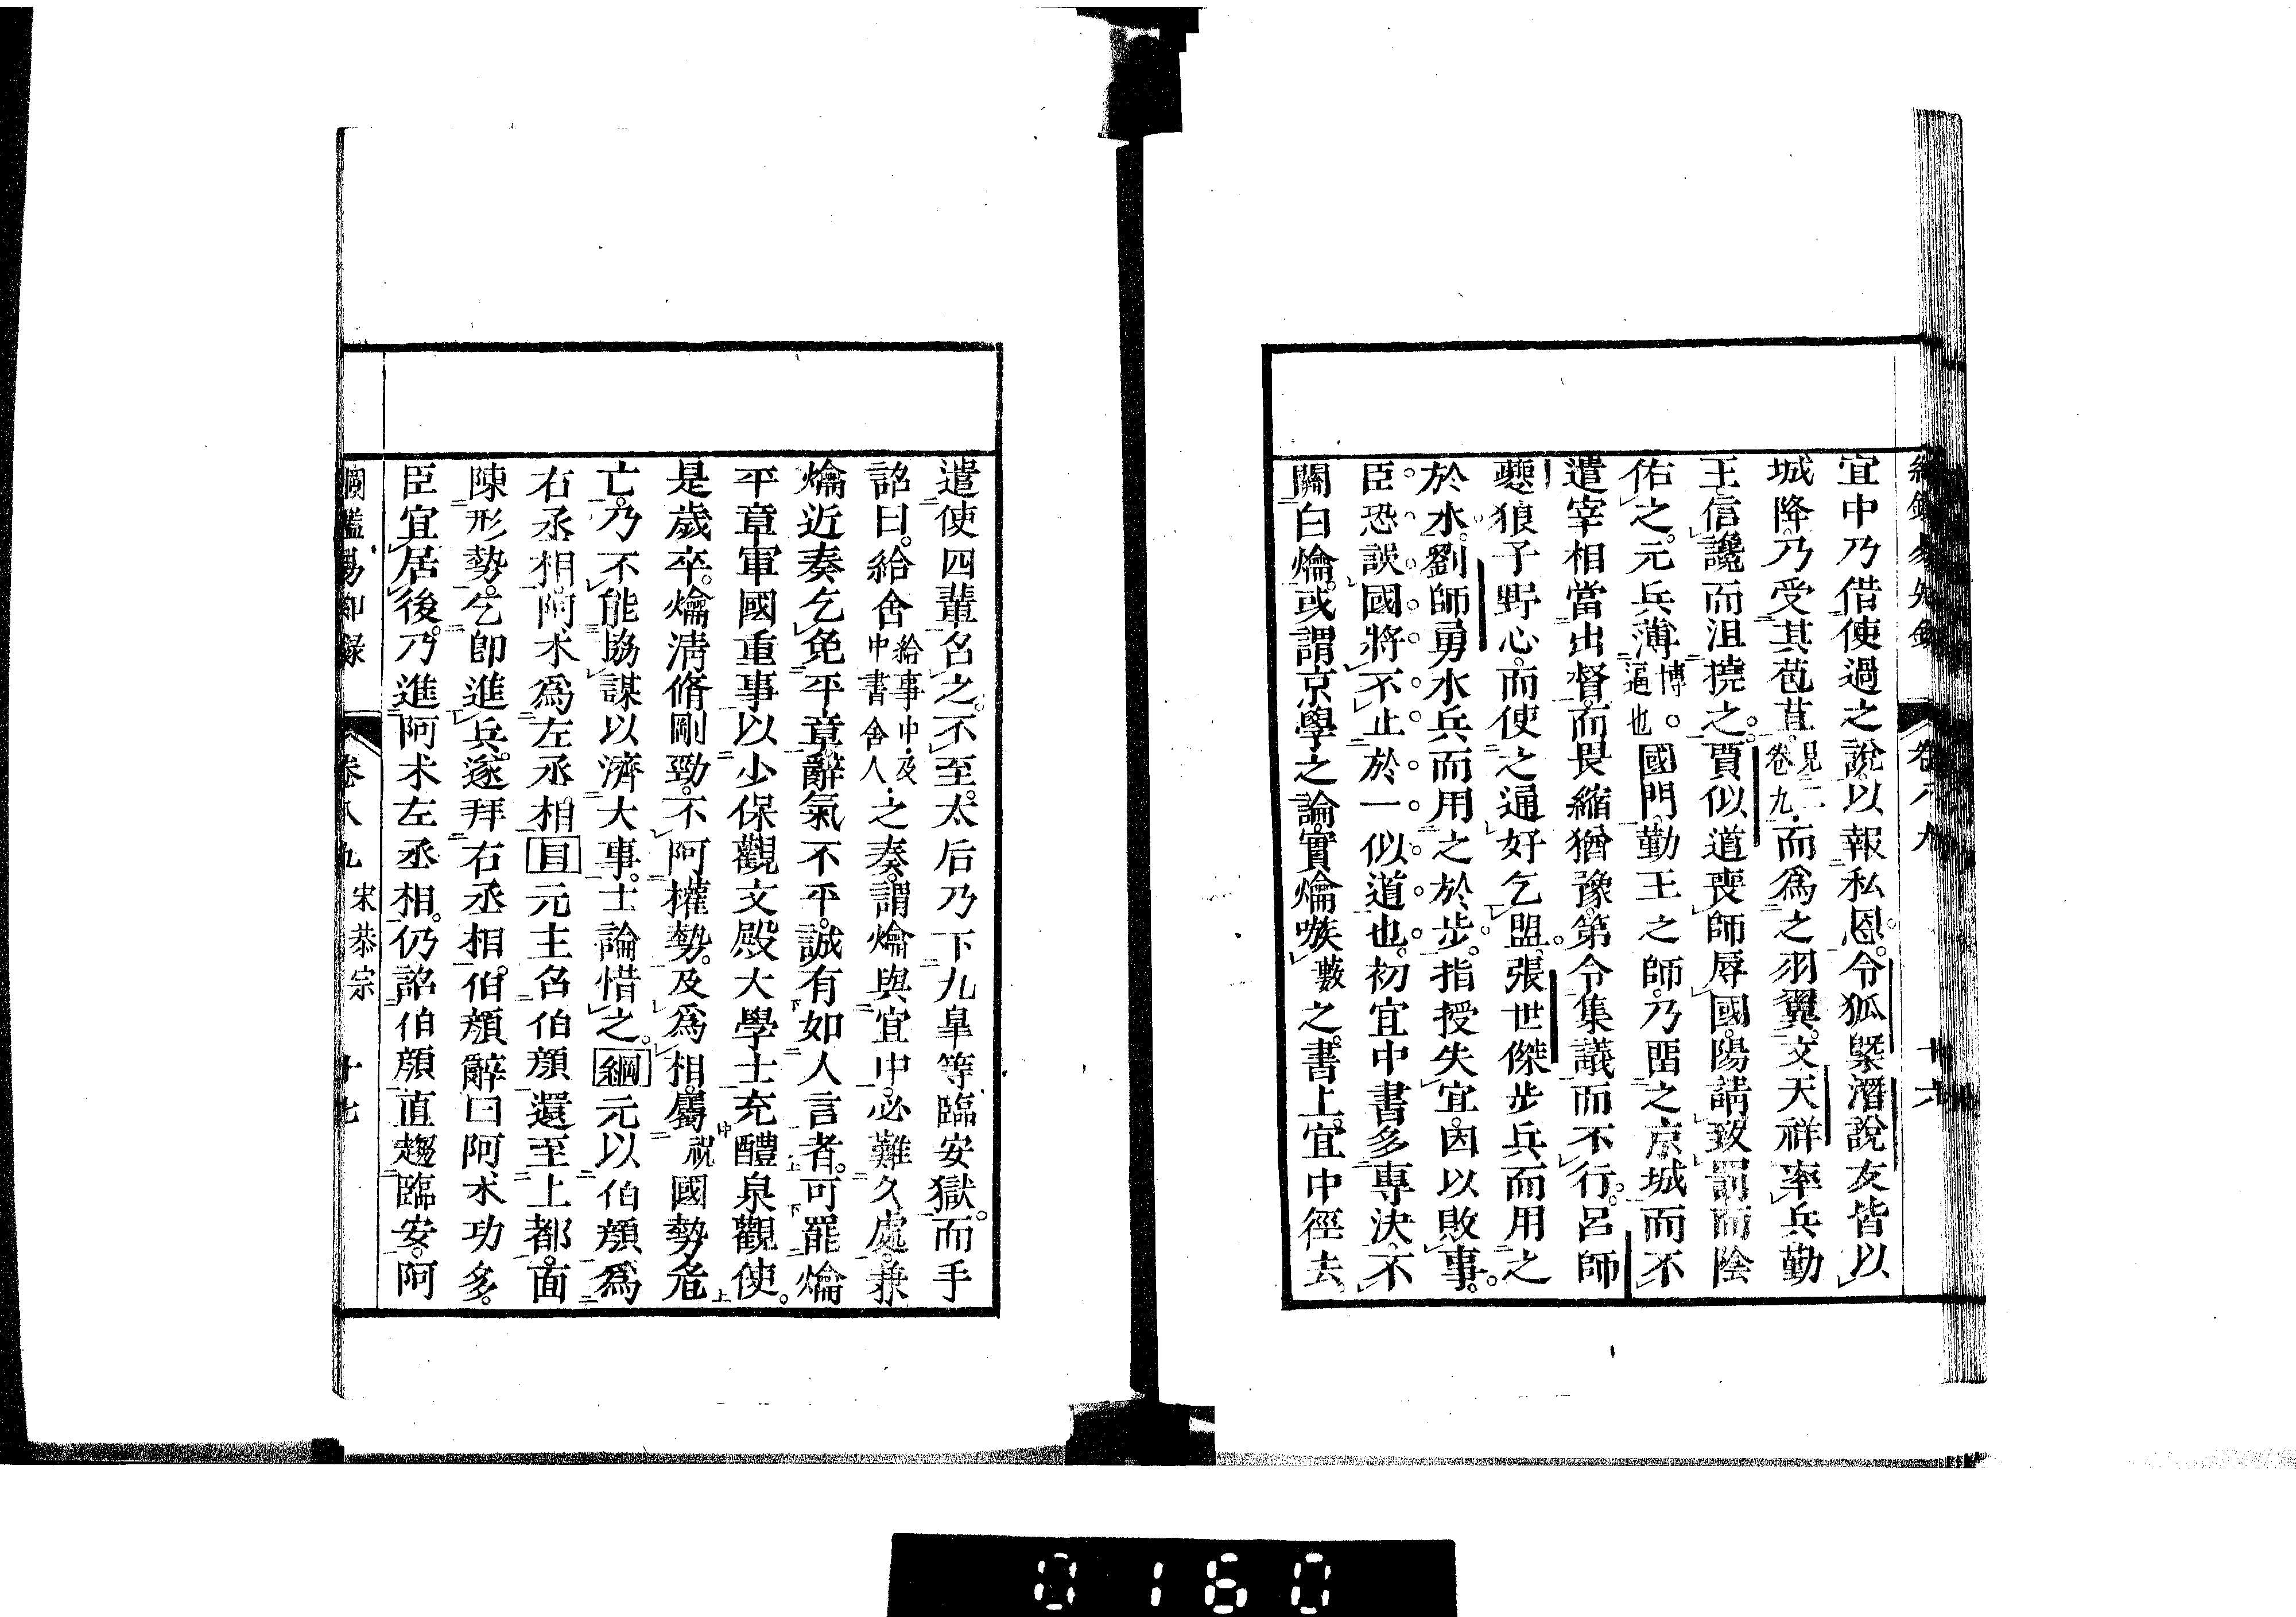 宜中乃借使過之說以報私恩。令狐槩潛說友皆以
城降乃受其苞苴。見二卷九而爲之羽翼。文天祥率兵勤
王信讒而沮撓之。賈似道喪師辱國。陽請致罰而陰
佑之。元兵薄博。逼也國門。勤王之師。乃畱之京城而不
遣宰相當出督而畏縮猶豫。第令集議而不行。呂師
夔狼子野心。而使之通好乞盟。張世傑步兵而用之
於水。劉師勇水兵而用之於步。指授失宜。因以敗事。
臣恐誤國將不止於一似道也。初宜中書多專決。不
關白爚。或謂京學之論。實爚嗾藪之。書上。宜中徑去。
遣使四輩名之。不至。太后乃下九皐等臨安獄。而手
詔曰。給舍給事中及中書舍人之奏。謂爚與宜中。必難久處。兼
爚近奏乞免平章。辭氣不平。誠有如人言者。可罷爚
平章軍國重事。以少保觀文殿大學士充醴泉觀使。
是歲卒。爚淸脩剛勁。不阿權勢。及爲相。屬祝國勢危
亡。乃不能協謀以濟大事。士論惜之。綱元以伯顏爲
右丞相。阿朮爲左丞相。目元主名伯顏還至上都。面
陳形勢。乞卽進兵。遂拜右丞相。伯顏辭曰阿朮功多。
臣宜居後。乃進阿朮左丞相。仍詔伯顏直趨臨安。阿
綱鑑易知錄 卷八九 宋恭宗 十七
卷八九 十六
0160